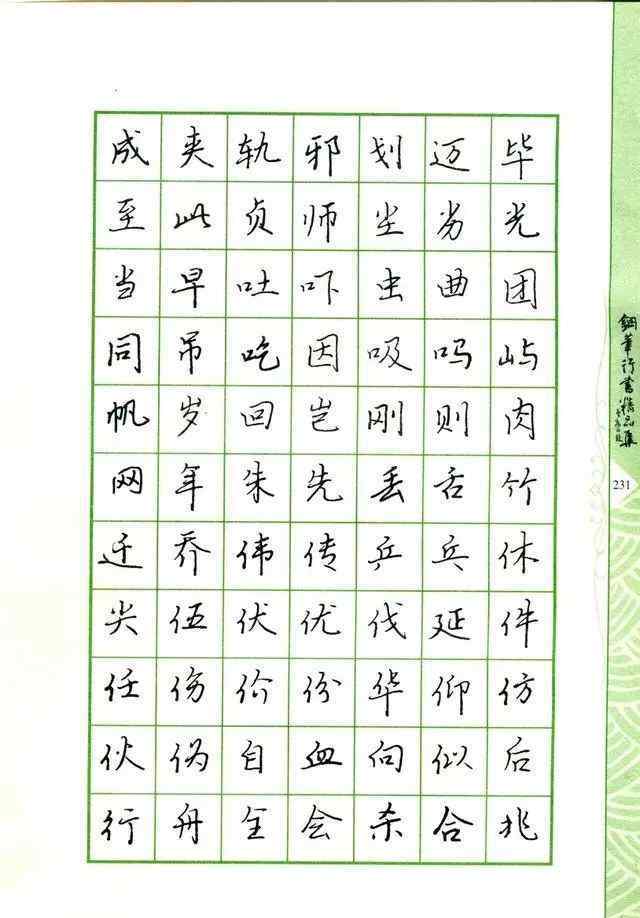 成 夹 轨 邪 划 迈 毕
至 此 贞 师 尘 劣 光
当 早 吐 吓 虫 曲 团
同 吊 吃 因 吸 吗 屿
帆 岁 回 岂 刚 则 肉
网 年 朱 先 丢 舌 竹
迁 乔 伟 传 乒 乓 休
尖 伍 伏 优 伐 延 件
任 伤 价 份 华 仰 仿
伙 伪 自 血 向 似 后
行 舟 全 会 杀 合 兆
鋼筆行書精品集
231